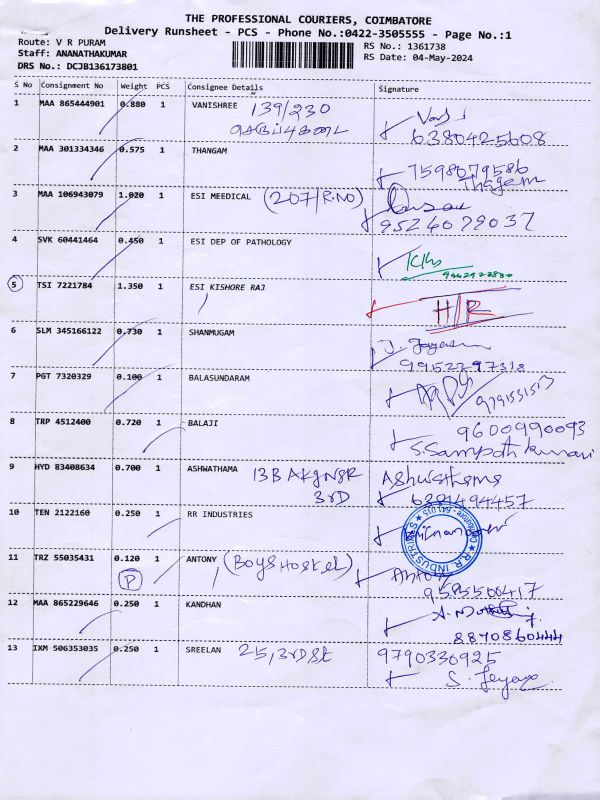 THE PROFESSIONAL COURIERS, COIMBATORE
Delivery Runsheet - PCS - Phone No.:0422-3505555 - Page No.:1
Route: V R PURAM
RS No.: 1361738
Staff: ANANATHAKUMAR
RS Date: 04-May-2024
DRS No.: DCJB136173801
S No Consignment No Weight PCS Consignee Details Signature
1 MAA 865444901 0.880 1 VANISHREE 139/230
6380425608
2 MAA 301334346 0.575 1 THANGAM
7598079586
Thagam
3 MAA 106943079 1.020 1 ESI MEEDICAL (207/R.NO)
9524079037
4 SVK 60441464 0.450 1 ESI DEP OF PATHOLOGY
5 TSI 7221784 1.350 1 ESI KISHORE RAJ H/R
6 SLM 345166122 0.730 1 SHANMUGAM
99152297318
7 PGT 7320329 0.100 1 BALASUNDARAM
9791531513
8 TRP 4512400 0.720 1 BALAJI 9600990093
S.Sampath kumari
9 HYD 83408634 0.700 1 ASHWATHAMA 13B AKG NGR Ashwathama
3RD 6381494457
10 TEN 2122160 0.250 1 RR INDUSTRIES
R.R. INDUSTRIES COIMBATORE - 641 015
11 TRZ 55035431 0.120 1 ANTONY (BOYS HOSTEL) Antony
P 9585500417
12 MAA 865229646 0.250 1 KANDHAN
8870860444
13 IXM 506353035 0.250 1 SREELAN 25, 3RD St 9790330925